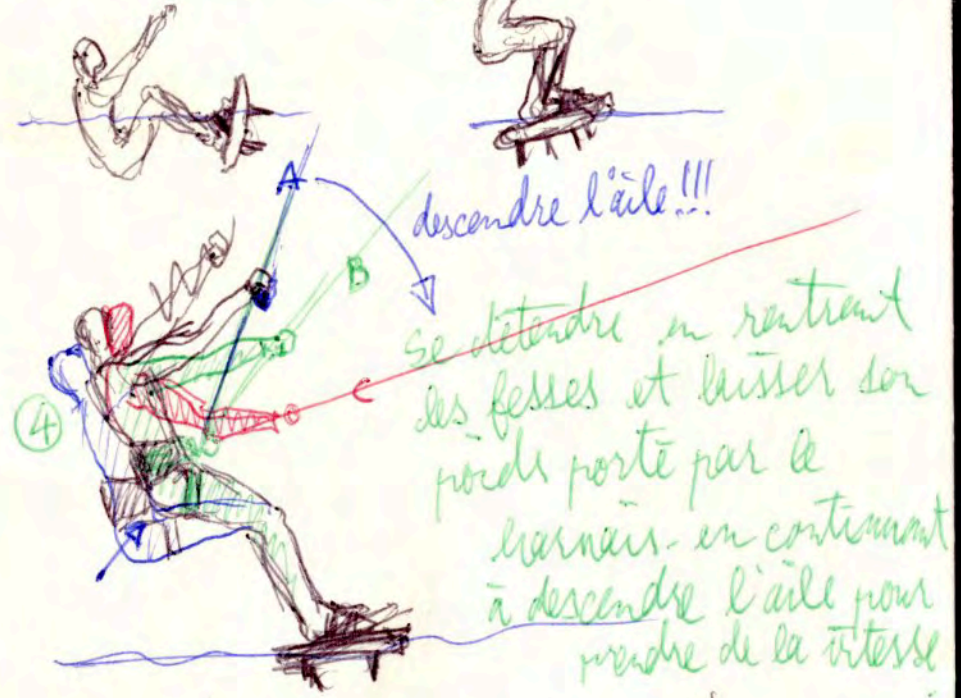 A
descendre l'aile!!!
B
Se détendre en rentrant
C
les fesses et laisser son
④
poids porté par le
harnais. en continuant
à descendre l'aile pour
prendre de la vitesse